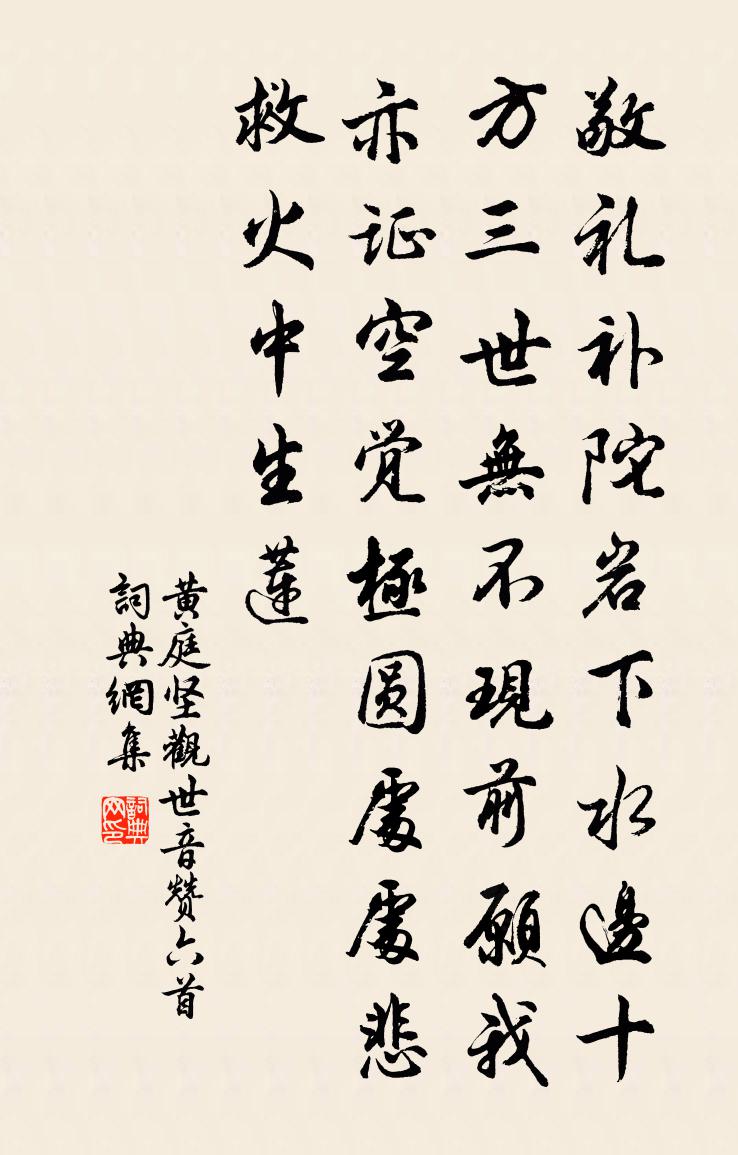 敬礼补陀岩下水邊十
方三世無不現前願我
亦证空觉極圆處處悲
救火中生蓮
黄庭坚觀世音赞六首
詞典網集
詞典网印